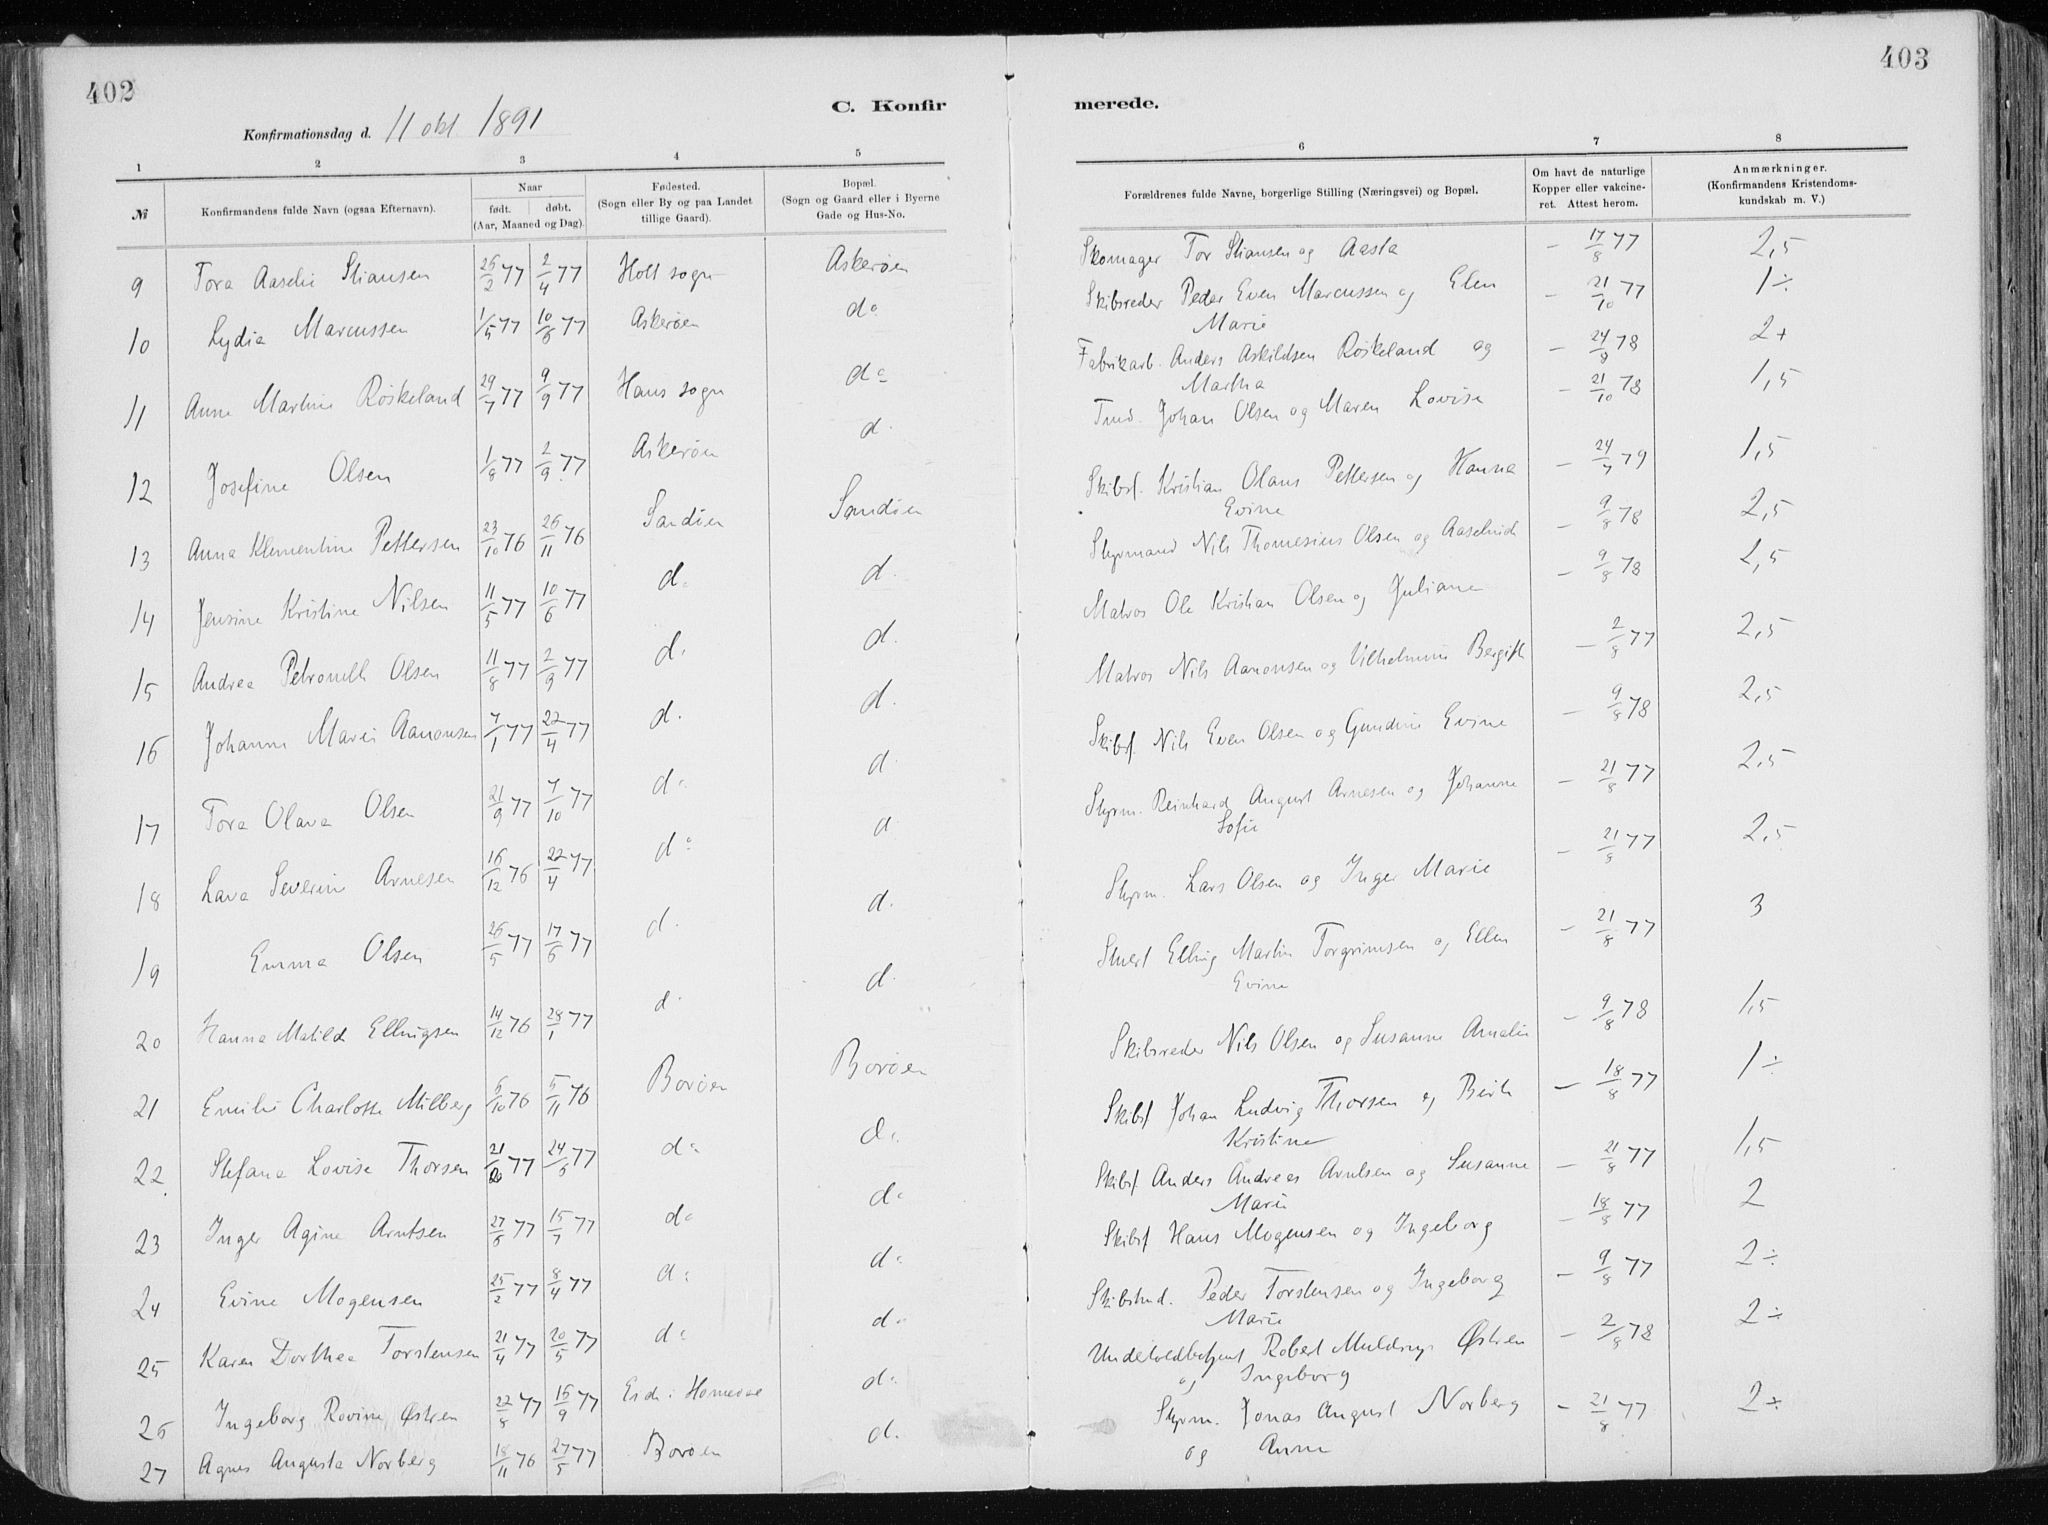 402
403
C. Konfir
merede.
Konfirmationsdag d. 11 okt 1891
1 2 3 4 5 6 7 8
№ Konfirmandens fulde Navn (ogsaa Efternavn). Naar født. døbt. (Aar, Maaned og Dag). Fødested. (Sogn eller By og paa Landet tillige Gaard). Bopæl. (Sogn og Gaard eller i Byerne Gade og Hus-No. Forældrenes fulde Navne, borgerlige Stilling (Næringsvei) og Bopæl. Om havt de naturlige Kopper eller vakcineret. Attest herom. Anmærkninger. (Konfirmandens Kristendomskundskab m. V.)
9 Tora Aaselie Stiansen 26/2 77 2/4 77 Holt sogn Askerøen Skomager Tor Stiansen og Aasta – 17/8 77 2,5
10 Lydia Marcussen 1/5 77 10/6 77 Askerøen do Skibsreder Peder Even Marcussen og Elen – 21/10 77 1÷
Marie
11 Anne Martine Røskeland 29/7 77 9/9 77 Høus sogn do Fabrikarb. Anders Askildsen Røskeland og – 24/8 78 2+
Martha
12 Josefine Olsen 1/8 77 2/9 77 Askerøen d. Tmd. Johan Olsen og Maren Lovise – 21/10 78 1,5
13 Anna Klementine Pettersen 23/10 76 26/11 76 Sandøen Sandøen Skibsf. Kristian Olaus Pettersen og Hanna – 24/7 79 1,5
Evine
14 Jensine Kristine Nilsen 11/5 77 10/6 77 d. d. Styrmand Nils Thomesius Olsen og – 9/8 78 2,5
15 Andrea Petronelle Olsen 11/8 77 2/9 77 d. d. Matros Ole Kristian Olsen og Juliane – 9/8 78 2,5
16 Johanne Marie Aanonsen 7/1 77 22/4 77 d. d. Matros Nils Aanonsen og Vilhelmine Bergith – 2/8 77 2,5
17 Tora Olava Olsen 21/9 77 7/10 77 d. d. Skibsf. Nils Even Olsen og Gundine Evine – 9/8 78 2,5
18 Lava Severine Arnesen 16/12 76 22/4 77 do d. Styrm. Reinhard August Arnesen og Johanne – 21/8 77 2,5
Sofie
19 Emma Olsen 26/5 77 17/6 77 d. d. Styrm. Lars Olsen og Inger Marie – 21/8 77 2,5
20 Hanna Matilde Ellingsen 14/12 76 28/1 77 d. d. Stuert Elling Martin Torgrimsen og Ellen – 21/8 77 3
Evine
21 Emilie Charlotte Milberg 6/10 76 5/11 76 Borøen Borøen Skibsreder Nils Olsen og Susanne Amalie – 9/8 78 1,5
22 Stefana Lovise Thorsen 21/6 77 24/6 77 do do Skibsf Johan Ludvig Thorsen og Berthe – 18/8 77 1÷
Kristine
23 Inger Agine Arntsen 27/6 77 15/7 77 do do Skibsf. Anders Andreas Arntsen og Susanne – 21/8 77 1,5
Marie
24 Evine Mogensen 25/2 77 8/4 77 do do Skibsf Hans Mogensen og Ingeborg – 18/8 77 2
25 Karen Dorthea Torstensen 21/4 77 20/5 77 do do Skibstmd. Peder Torstensen og Ingeborg – 9/8 77 2÷
Marie
26 Ingeborg Rovine Østren 22/8 77 16/9 77 Eide i do Robert Østren – 2/8 78 2÷
og Ingeborg
27 Agnes Augusta Norberg 18/11 76 27/5 77 Borøen d. Styrm. Jonas August Norberg – 21/8 77 2÷
og Anne